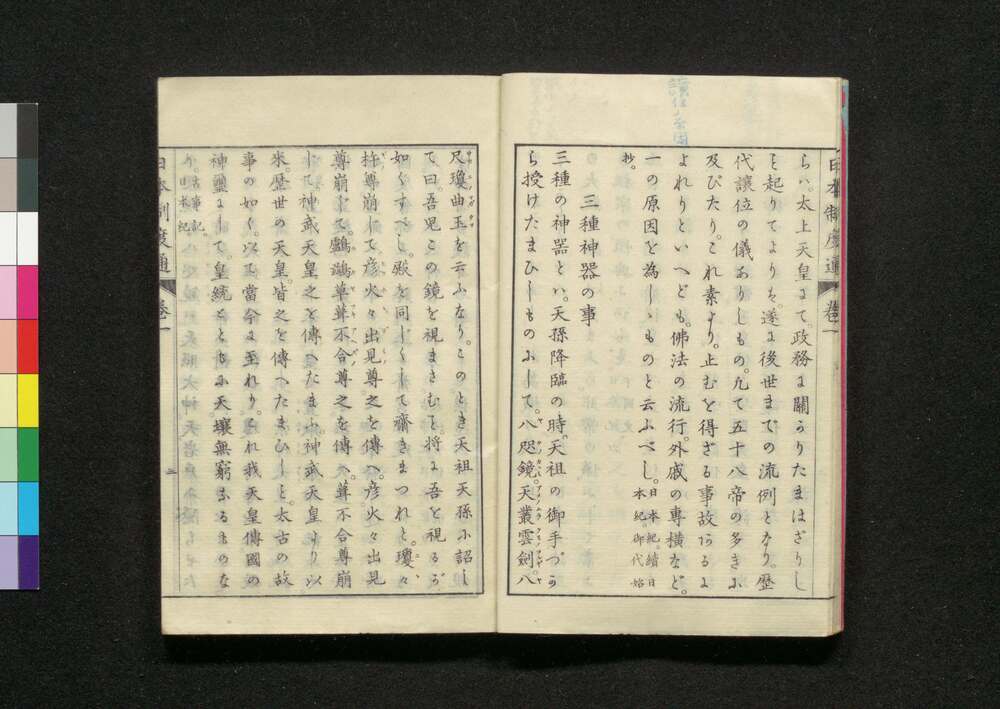 讓位ノ原因
日本制度通 卷一
らハ。太上天皇にて。政務に關かりたまはざりし
を起りてよりそ。遂に後世までの流例となり。歴
代讓位の儀ありしもの。九て五十八帝の多きに
及びたり。これ素より。止むを得ざる事故あるに
よれりといへども。佛法の流行。外戚の專横など。
一の原因を為しゝものと云ふべし。日本紀。續日本紀。御代始
抄。
三種神器の事
三種の神器とハ。天孫降臨の時。天祖の御手づか
ら授けたまひしものにして。八咫鏡。天叢雲劍。八
尺瓊曲玉を云ふなり。このとき天祖天孫に詔し
て曰。吾児この鏡を視まさむこと。將に吾を視るが
如くすべし。殿を同しくして齋きまつれと。瓊々
杵尊崩して。彦火々出見尊之を傳へ。彦火々出見
尊崩して。鸕鷀草葺不合尊之を傳へ。葺不合尊崩
して。神武天皇之を傳へたまふ。神武天皇より以
來。歴世の天皇。皆之を傳へたまひしこと。太古の故
事の如く。以て當今に至れり。これ我天皇傳國の
神璽にして。皇統とともに天壤無窮なるものな
り。古事記。日本紀。
日本制度通 卷一
二